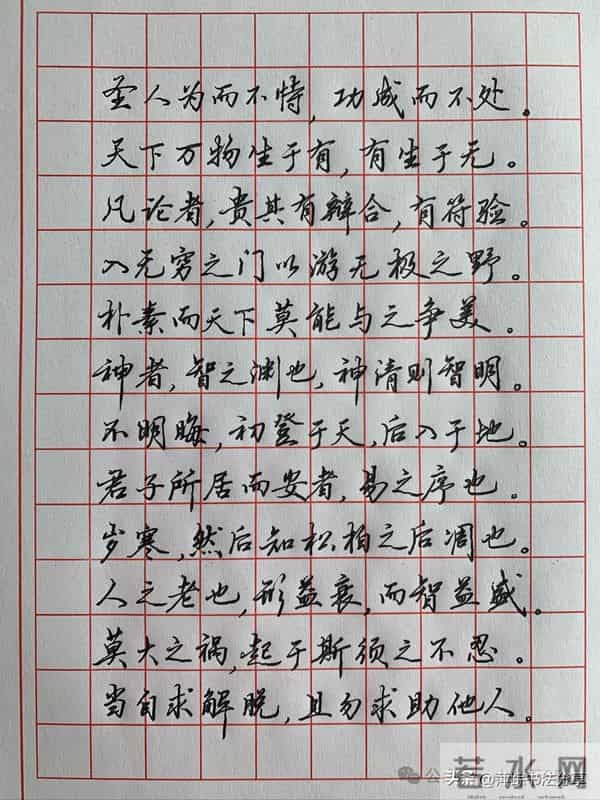 圣人为而不恃，功成而不处。
天下万物生于有，有生于无。
凡论者，贵其有辩合，有符验。
入无穷之门以游无极之野。
朴素而天下莫能与之争美。
神者，智之渊也，神清则智明。
不明晦，初登于天，后入于地。
君子所居而安者，易之序也。
岁寒，然后知松柏之后凋也。
人之老也，形益衰，而智益盛。
莫大之祸，起于斯须之不忍。
当自求解脱，且勿求助他人。
若水网
公
头条